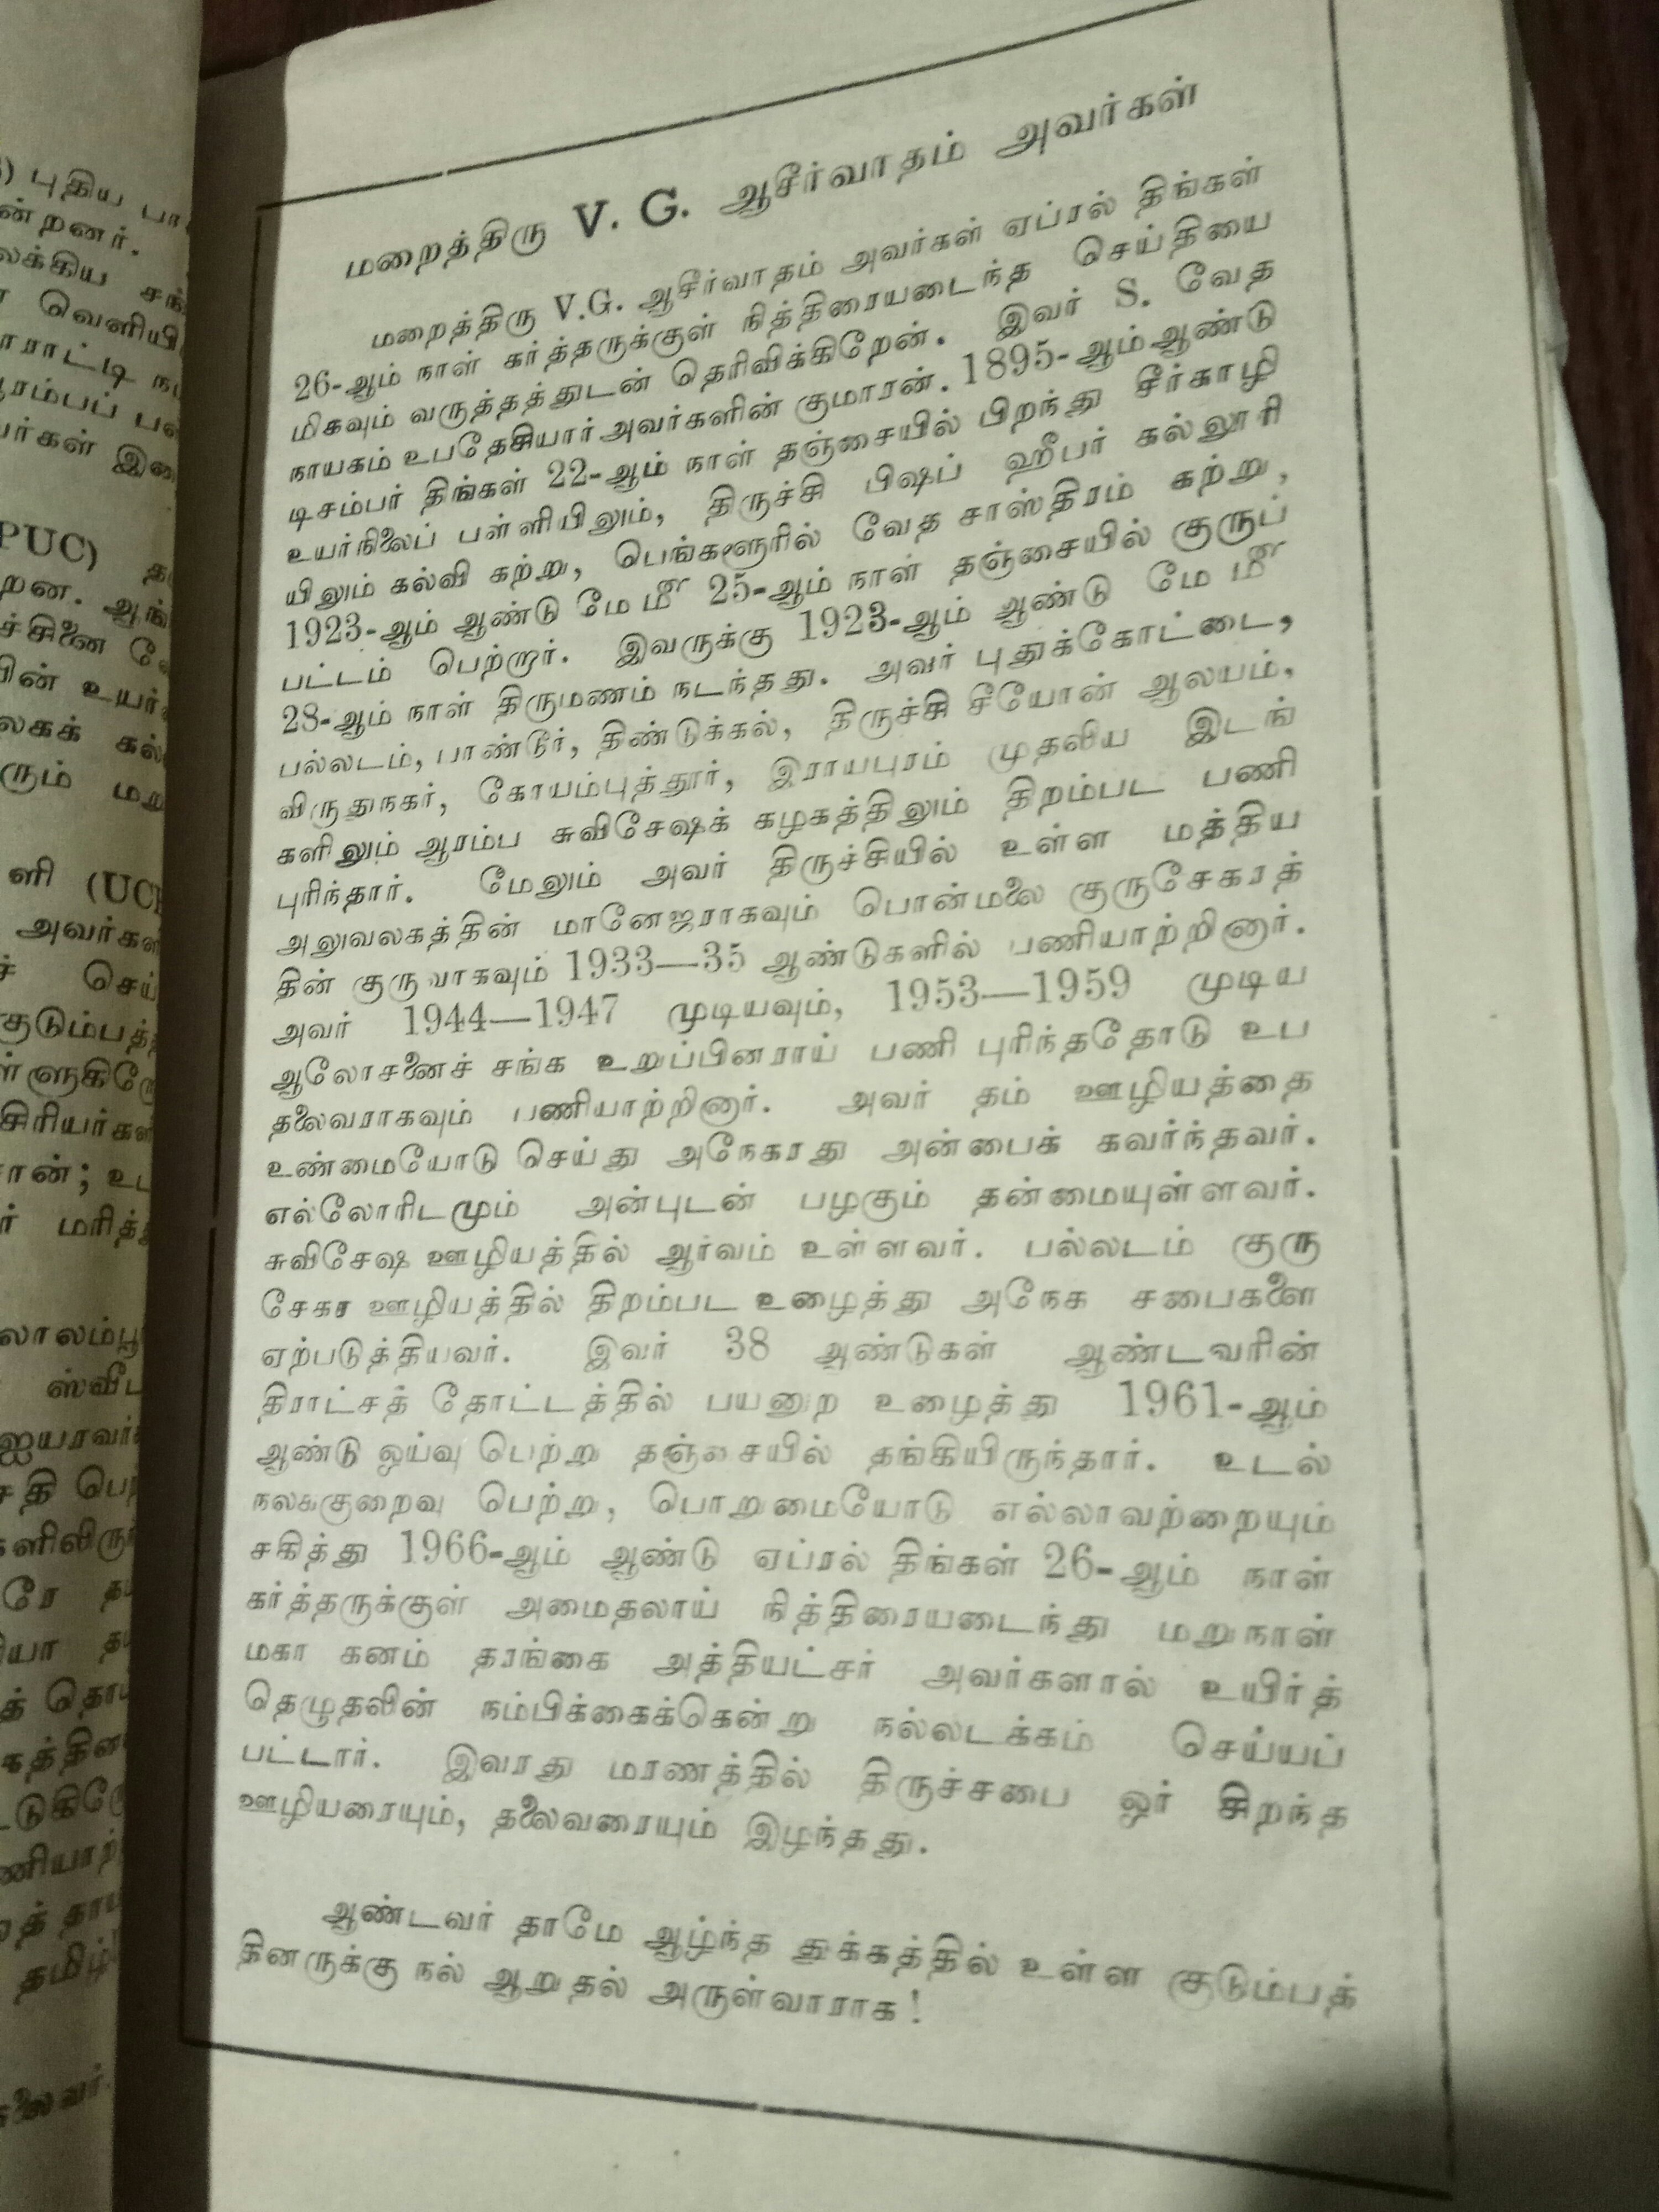 மறைத்திரு V. G. ஆசீர்வாதம் அவர்கள்
மறைத்திரு V.G. ஆசீர்வாதம் அவர்கள் ஏப்ரல் திங்கள்
26-ஆம் நாள் கர்த்தருக்குள் நித்திரையடைந்த செய்தியை
மிகவும் வருத்தத்துடன் தெரிவிக்கிறேன். இவர் S. வேத
நாயகம் உபதேசியார் அவர்களின் குமாரன். 1895-ஆம்ஆண்டு
டிசம்பர் திங்கள் 22-ஆம் நாள் தஞ்சையில் பிறந்து சீர்காழி
உயர்நிலைப் பள்ளியிலும், திருச்சி பிஷப் ஹீபர் கல்லூரி
யிலும் கல்வி கற்று, பெங்களூரில் வேத சாஸ்திரம் கற்று,
1923-ஆம் ஆண்டு மே ௴ 25-ஆம் நாள் தஞ்சையில் குருப்
பட்டம் பெற்றார். இவருக்கு 1923-ஆம் ஆண்டு மே ௴
28-ஆம் நாள் திருமணம் நடந்தது. அவர் புதுக்கோட்டை,
பல்லடம், பாண்டூர், திண்டுக்கல், திருச்சி சீயோன் ஆலயம்,
விருதுநகர், கோயம்புத்தூர், இராயபுரம் முதலிய இடங்
களிலும் ஆரம்ப சுவிசேஷக் கழகத்திலும் திறம்பட பணி
புரிந்தார். மேலும் அவர் திருச்சியில் உள்ள மத்திய
அலுவலகத்தின் மானேஜராகவும் பொன்மலை குருசேகரத்
தின் குருவாகவும் 1933—35 ஆண்டுகளில் பணியாற்றினார்.
அவர் 1944—1947 முடியவும், 1953—1959 முடிய
ஆலோசனைச் சங்க உறுப்பினராய் பணி புரிந்ததோடு உப
தலைவராகவும் பணியாற்றினார். அவர் தம் ஊழியத்தை
உண்மையோடு செய்து அநேகரது அன்பைக் கவர்ந்தவர்.
எல்லோரிடமும் அன்புடன் பழகும் தன்மையுள்ளவர்.
சுவிசேஷ ஊழியத்தில் ஆர்வம் உள்ளவர். பல்லடம் குரு
சேகர ஊழியத்தில் திறம்பட உழைத்து அநேக சபைகளை
ஏற்படுத்தியவர். இவர் 38 ஆண்டுகள் ஆண்டவரின்
திராட்சத் தோட்டத்தில் பயனுற உழைத்து 1961-ஆம்
ஆண்டு ஓய்வு பெற்று தஞ்சையில் தங்கியிருந்தார். உடல்
நலக்குறைவு பெற்று, பொறுமையோடு எல்லாவற்றையும்
சகித்து 1966-ஆம் ஆண்டு ஏப்ரல் திங்கள் 26-ஆம் நாள்
கர்த்தருக்குள் அமைதலாய் நித்திரையடைந்து மறுநாள்
மகா கனம் தரங்கை அத்தியட்சர் அவர்களால் உயிர்த்
தெழுதலின் நம்பிக்கைக்கென்று நல்லடக்கம் செய்யப்
பட்டார். இவரது மரணத்தில் திருச்சபை ஓர் சிறந்த
ஊழியரையும், தலைவரையும் இழந்தது.
ஆண்டவர் தாமே ஆழ்ந்த துக்கத்தில் உள்ள குடும்பத்
தினருக்கு நல் ஆறுதல் அருள்வாராக!